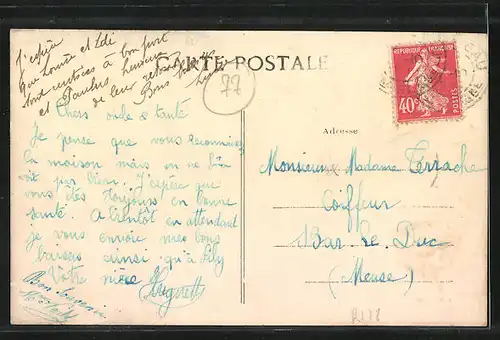 J'espère
que Louise et Lili
sont rentrées à bon port
et Paulus heureux
de leur retour
Bons
CARTE POSTALE
77
REPUBLIQUE FRANÇAISE
40c
POSTES
Chers oncle & tante
Je pense que vous reconnaissez
la maison mais on ne la
voit pas bien. J'espère que
vous êtes toujours en bonne
santé. A bientôt en attendant
je vous envoie mes bons
baisers ainsi qu'à Lily
Votre nièce
Huguette
Bon Souvenir
Adresse
Monsieur & Madame Terrache
Coiffeur
Bar-le-Duc
(Meuse)